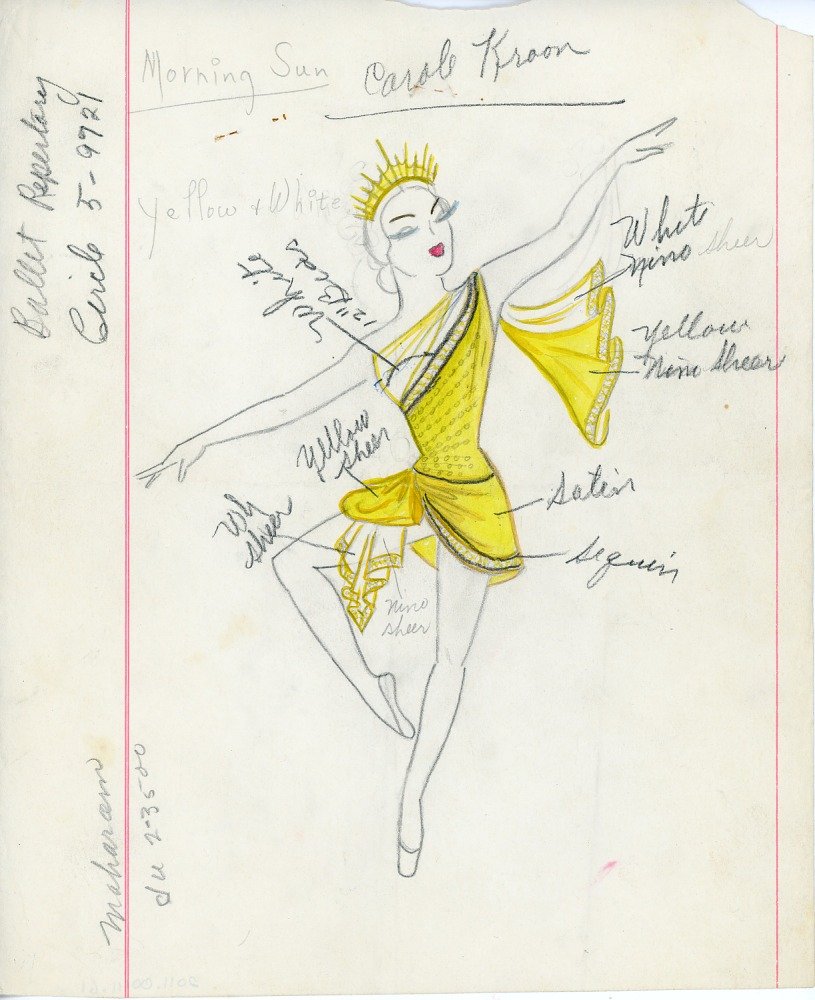 Morning Sun
Carole Kroon
Ballet Repertory
Circle 5-9721
Yellow + White
White
12" Bias
White
nino sheer
yellow
nino sheer
yellow
sheer
Wh
sheer
satin
sequin
nino
sheer
Maharam
du 2-3500